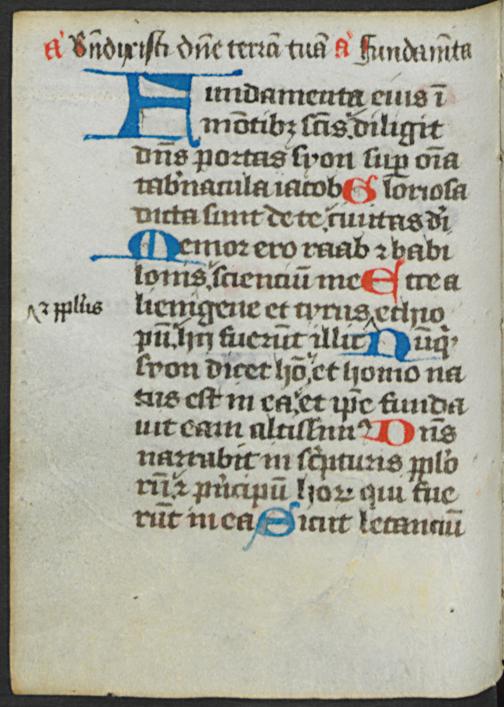 a̕ Bn̄dixisti dn̄e terrā tuā a̕ Fundamīta
Fundamenta eius ī
mōtibꝫ sc̄is, diligit
dn̄s portas syon suꝑ oīa
tab̕nacula iacob Gloriosa
dicta sunt de te, ciuitas dī
Memor ero raab ⁊ babi
lonis, scienciū me Ecce a
lienigene et tyrus, ethio
⁊ ppl̄us
pū, hii fuerūt illic Nūqͥ
syon dicet hō, et homo na
tus est in ea, et ip̄e funda
uit eam altissimꝰ Dn̄s
narrabit in sc̕pturis ppl̕o
rū, ⁊ pͥncipū hoꝝ qui fue
rūt in ea Sicut letanciū